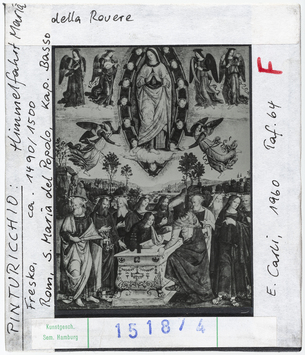 PINTURICCHIO: Himmelfahrt Mariä
Fresko, ca. 1490/1500
Rom, S. Maria del Popolo, Kap. Basso
della Rovere
F
E. Carli, 1960 Taf. 64
Kunstgesch.
Sem. Hamburg
15187/4